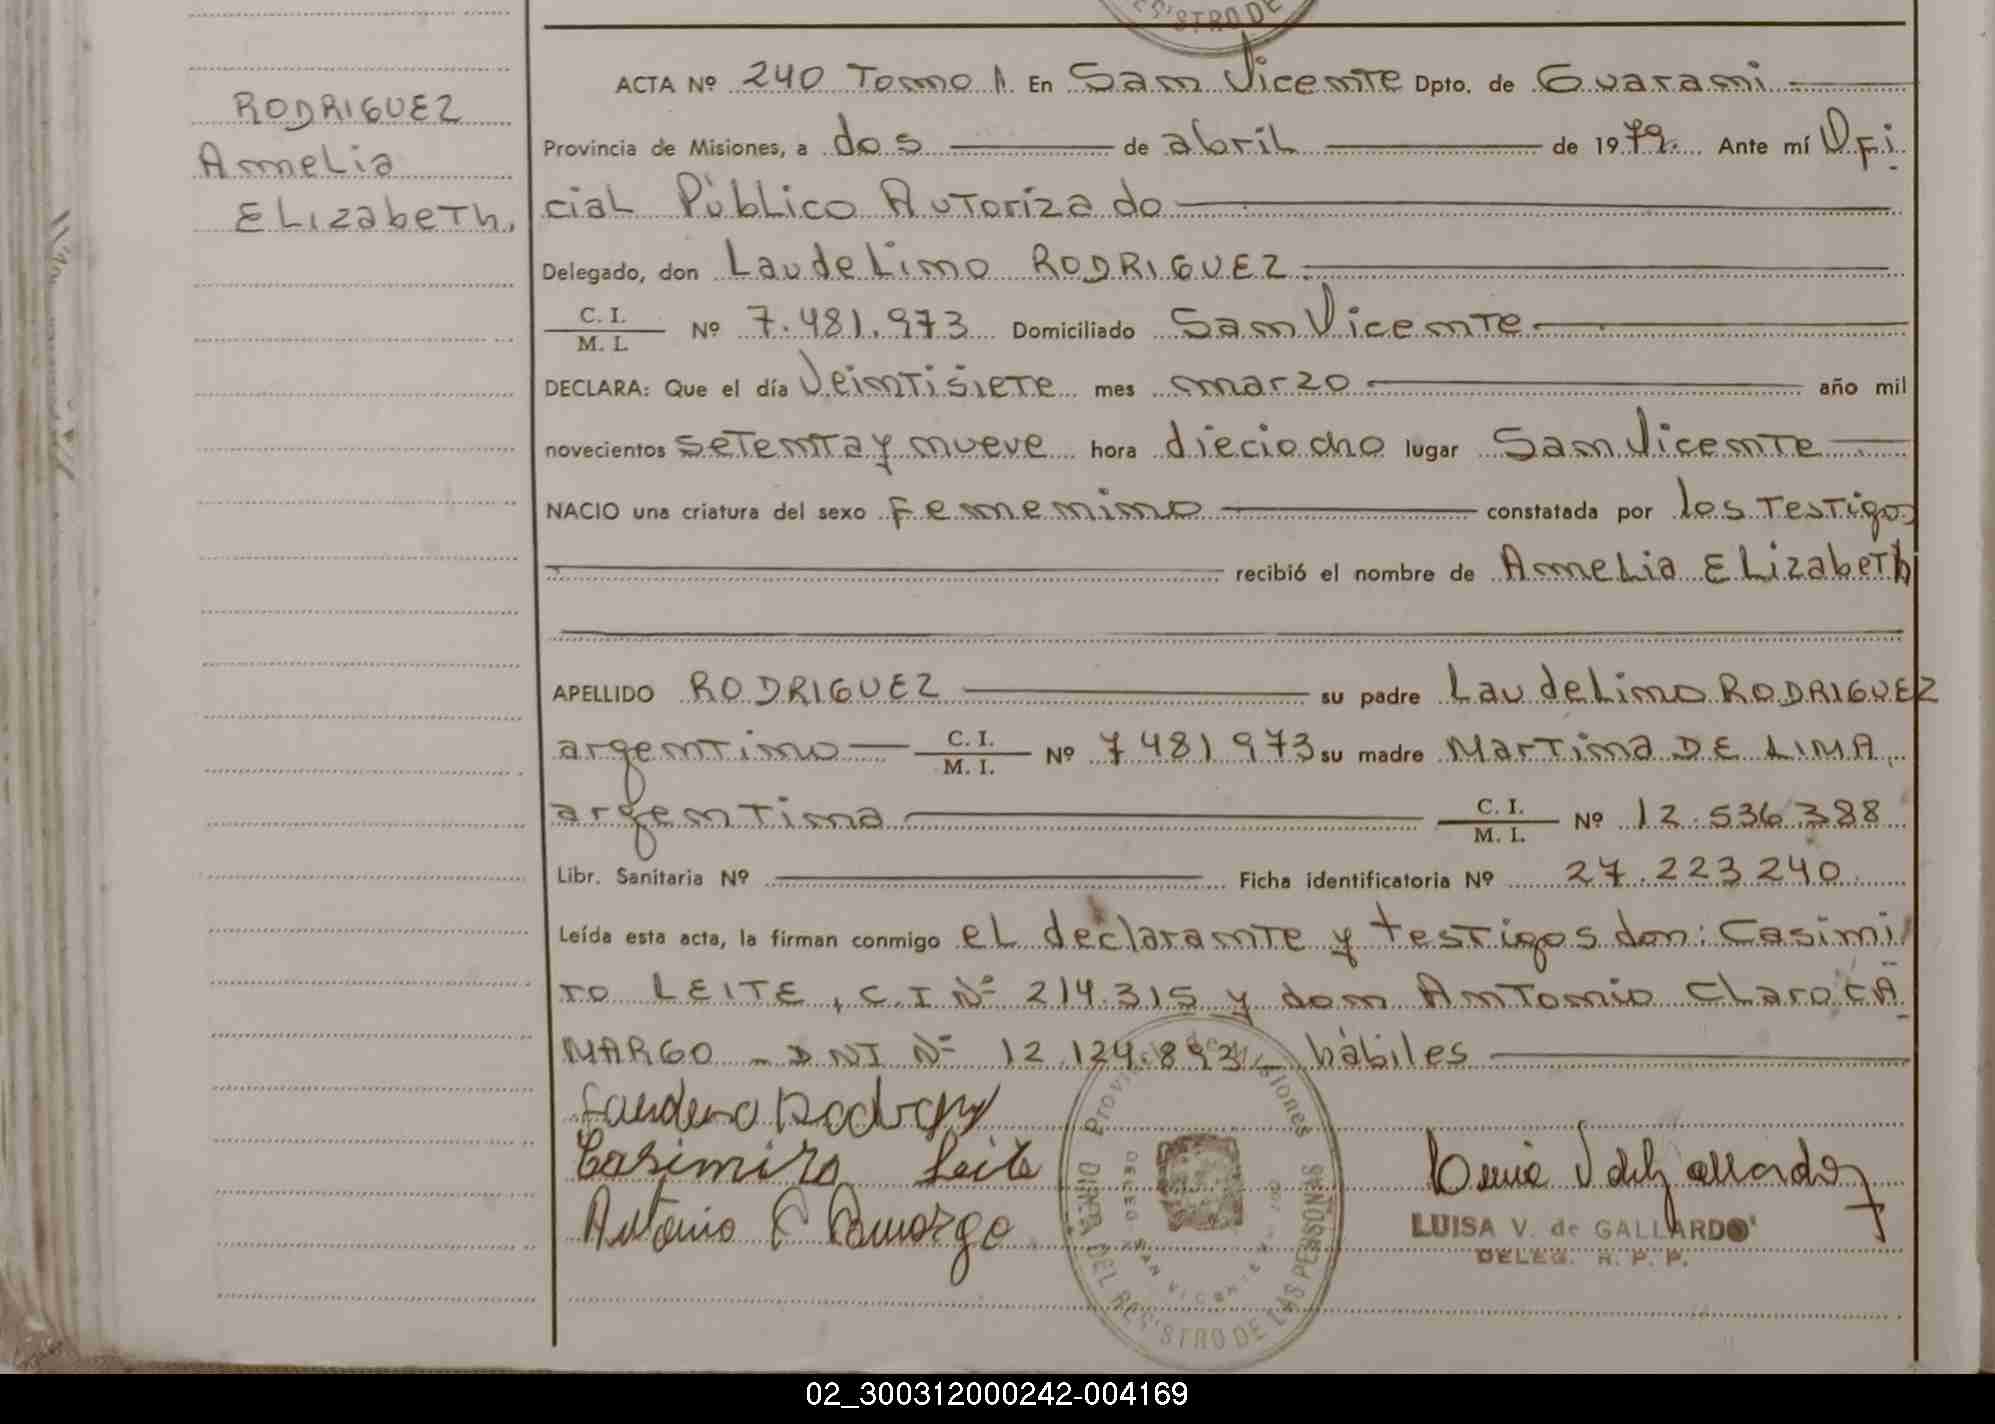 RODRIGUEZ
Amelia
Elizabeth.
REGISTRO DE
ACTA Nº 240 Tomo 1 En San Vicente Dpto. de Guarani
Provincia de Misiones, a dos de abril de 1979. Ante mí Ofi
cial Público Autorizado
Delegado, don Laudelino RODRIGUEZ
C. I. / M. I. Nº 7.481.973 Domiciliado San Vicente
DECLARA: Que el día Veintisiete mes marzo año mil
novecientos setenta y nueve hora dieciocho lugar San Vicente
NACIO una criatura del sexo Femenino constatada por los testigos
recibió el nombre de Amelia Elizabeth
APELLIDO RODRIGUEZ su padre Laudelino RODRIGUEZ
argentino C. I. / M. I. Nº 7481973 su madre Martina DE LIMA,
argentina C. I. / M. I. Nº 12.536.388
Libr. Sanitaria Nº Ficha identificatoria Nº 27.223.240
Leída esta acta, la firman conmigo el declarante y testigos don: Casimi
ro LEITE, C.I Nº 214.315 y don Antonio Claro CA
MARGO - DNI Nº 12.124.893 - hábiles
Casimiro Leite
Antonio C Camargo
Provincia de Misiones
DIREC. DEL REGISTRO DE LAS PERSONAS
SAN VICENTE
LUISA V. de GALLARDO
DELEG. R. P. P.
02_300312000242-004169